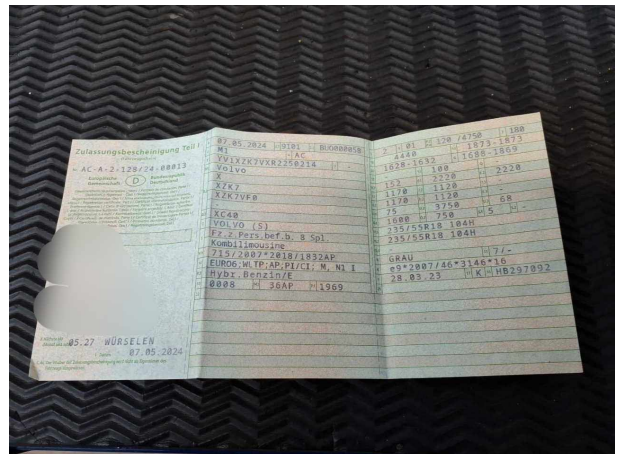 Zulassungsbescheinigung Teil I
AC-A-2-128/24-00013
Europäische Gemeinschaft D Bundesrepublik Deutschland
05.27 WÜRSELEN
07.05.2024
07.05.2024 9101 BUO000058
M1 AC
YV1XZK7VXR2250214
Volvo
X
XZK7
XZK7VF0
-
XC40
VOLVO (S)
Fz.z.Pers.bef.b. 8 Spl.
Kombilimousine
715/2007*2018/1832AP
EURO6;WLTP;AP;PI/CI; M, N1 I
Hybr.Benzin/E
0008 36AP 1969
2 01 120 /4750 180
4440 1873-1873
1628-1632 1686-1869
100
152 2220 2220
1170 1120 -
1170 1120 -
75 3750 68
1600 750 5 -
235/55R18 104H
235/55R18 104H
GRAU 7/-
e9*2007/46*3146*16
28.03.23 K HB297092